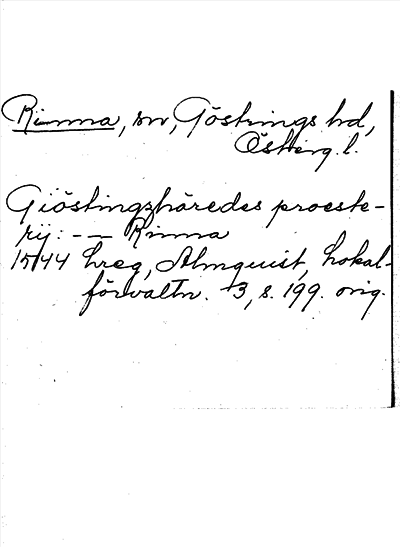 Rinna, sn, Göstrings hd,
Österg. l.
Giöstingzhäredes proeste-
rij: -- Rinna
1544 hreg, Almquist, Lokal-
förvaltn. 3, s. 199. orig.